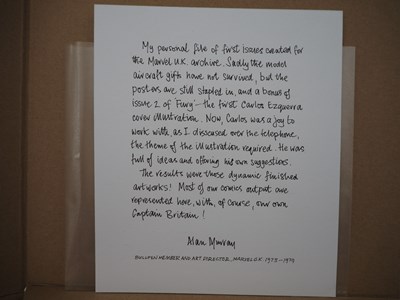 My personal file of first issues created for
the Marvel U.K. archive. Sadly the model
aircraft gifts have not survived, but the
posters are still stapled in, and a bonus of
issue 2 of 'Fury' - the first Carlos Ezquerra
cover illustration. Now, Carlos was a joy to
work with, as I discussed over the telephone,
the theme of the illustration required. He was
full of ideas and offering his own suggestions.
The results were those dynamic finished
artworks! Most of our comics output are
represented here, with, of course, our own
Captain Britain!
Alan Murray
BULLPEN MEMBER AND ART DIRECTOR, MARVEL U.K. 1975-1979